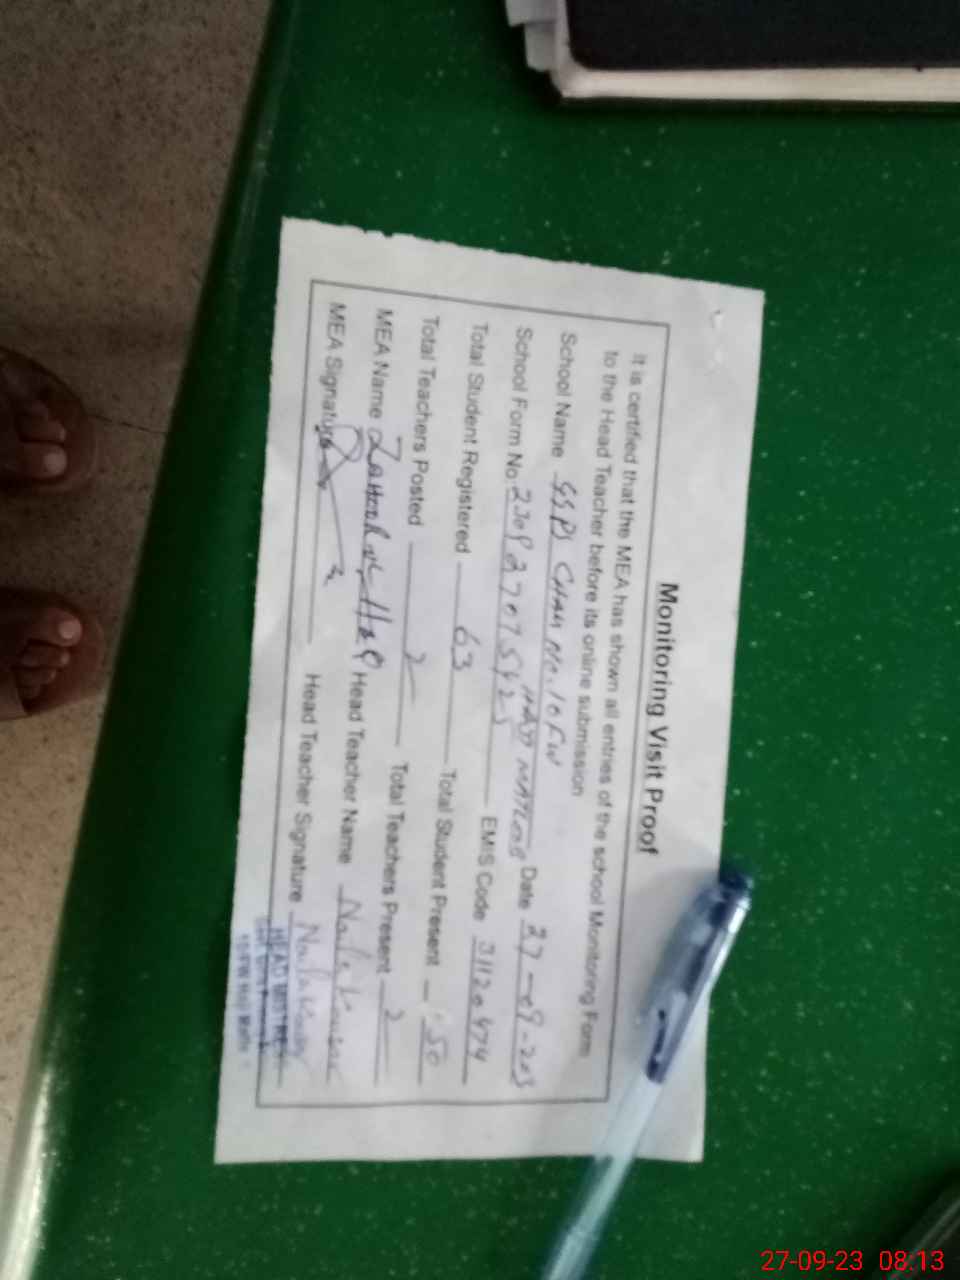 Monitoring Visit Proof
It is certified that the MEA has shown all entries of the school Monitoring Form
to the Head Teacher before its online submission
School Name GGPS CHAK No. 10 FW Date 27-09-203
School Form No. EMIS Code 31120474
Total Student Registered 63 Total Student Present 50
Total Teachers Posted 2 Total Teachers Present 2
MEA Name Head Teacher Name Naila
MEA Signature Head Teacher Signature Naila
HEAD MISTRESS
27-09-23 08:13